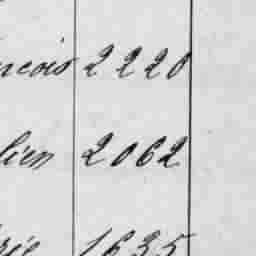 ncois 2220
lien 2062
rie 1635